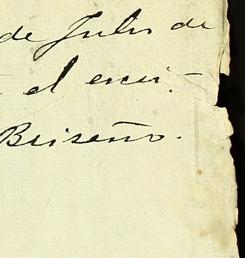 de Julio de
el escri-
Briseño.